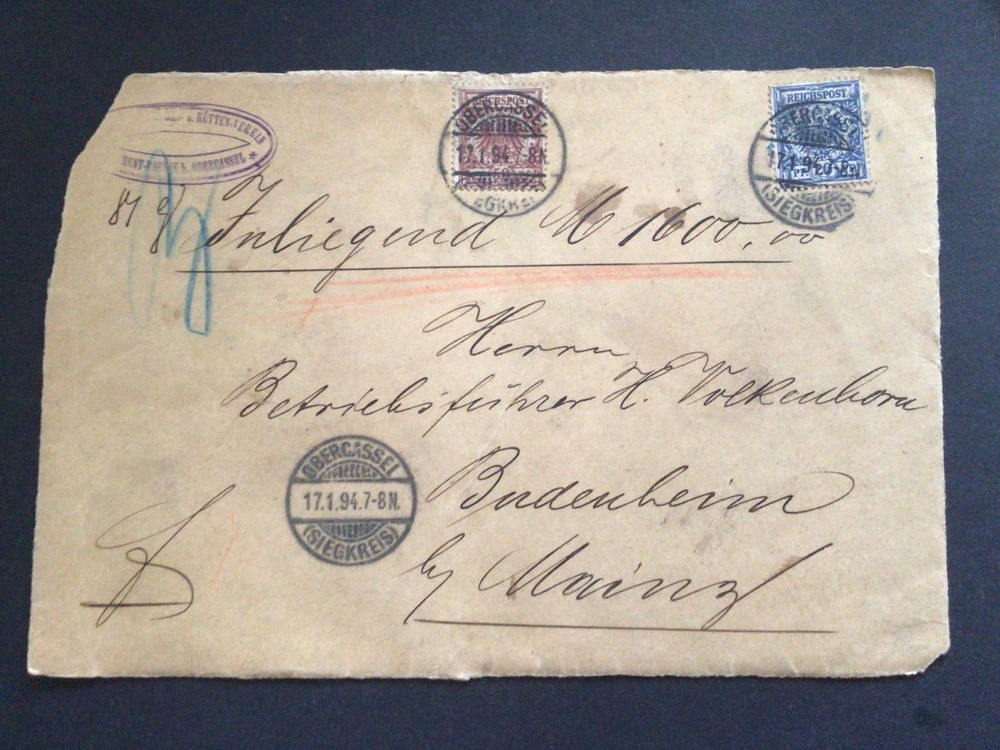 U. HÜTTEN-VEREIN
OBERCASSEL *
REICHSPOST
OBERCASSEL
17.1.94.7-8N.
REICHSPOST
OBERCASSEL
17.1.94.7-8N.
(SIEGKREIS)
81 g
Inliegend M 1600,00
Herrn
Betriebsführer H. Volkenborn
Budenheim
by Mainz
OBERCASSEL
17.1.94.7-8N.
(SIEGKREIS)